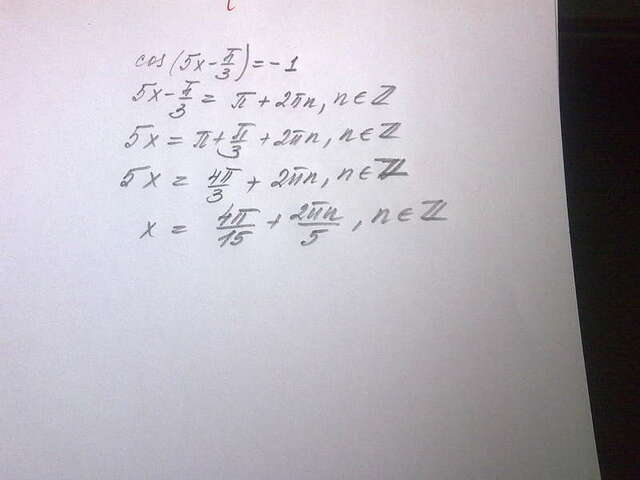 cos(5x - π/3) = -1
5x - π/3 = π + 2πn, n ∈ ℤ
5x = π + π/3 + 2πn, n ∈ ℤ
5x = 4π/3 + 2πn, n ∈ ℤ
x = 4π/15 + 2πn/5, n ∈ ℤ